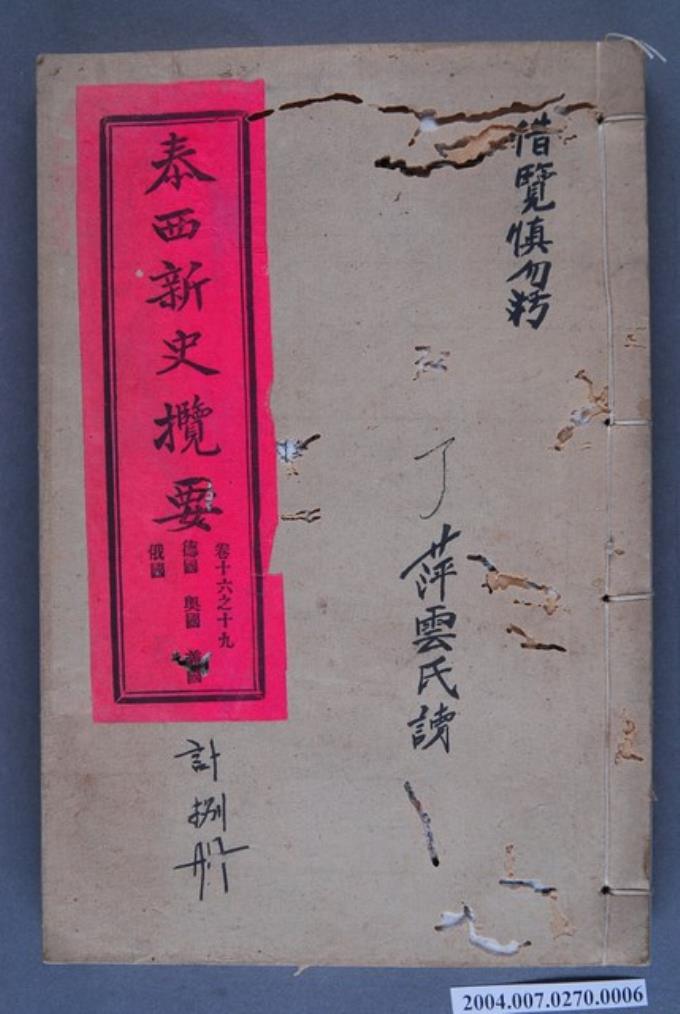 借覽慎勿污
了
萍雲氏讀
泰西新史攬要
卷十六之十九
德國 奧國 義國
俄國
計捌
2004.007.0270.0006